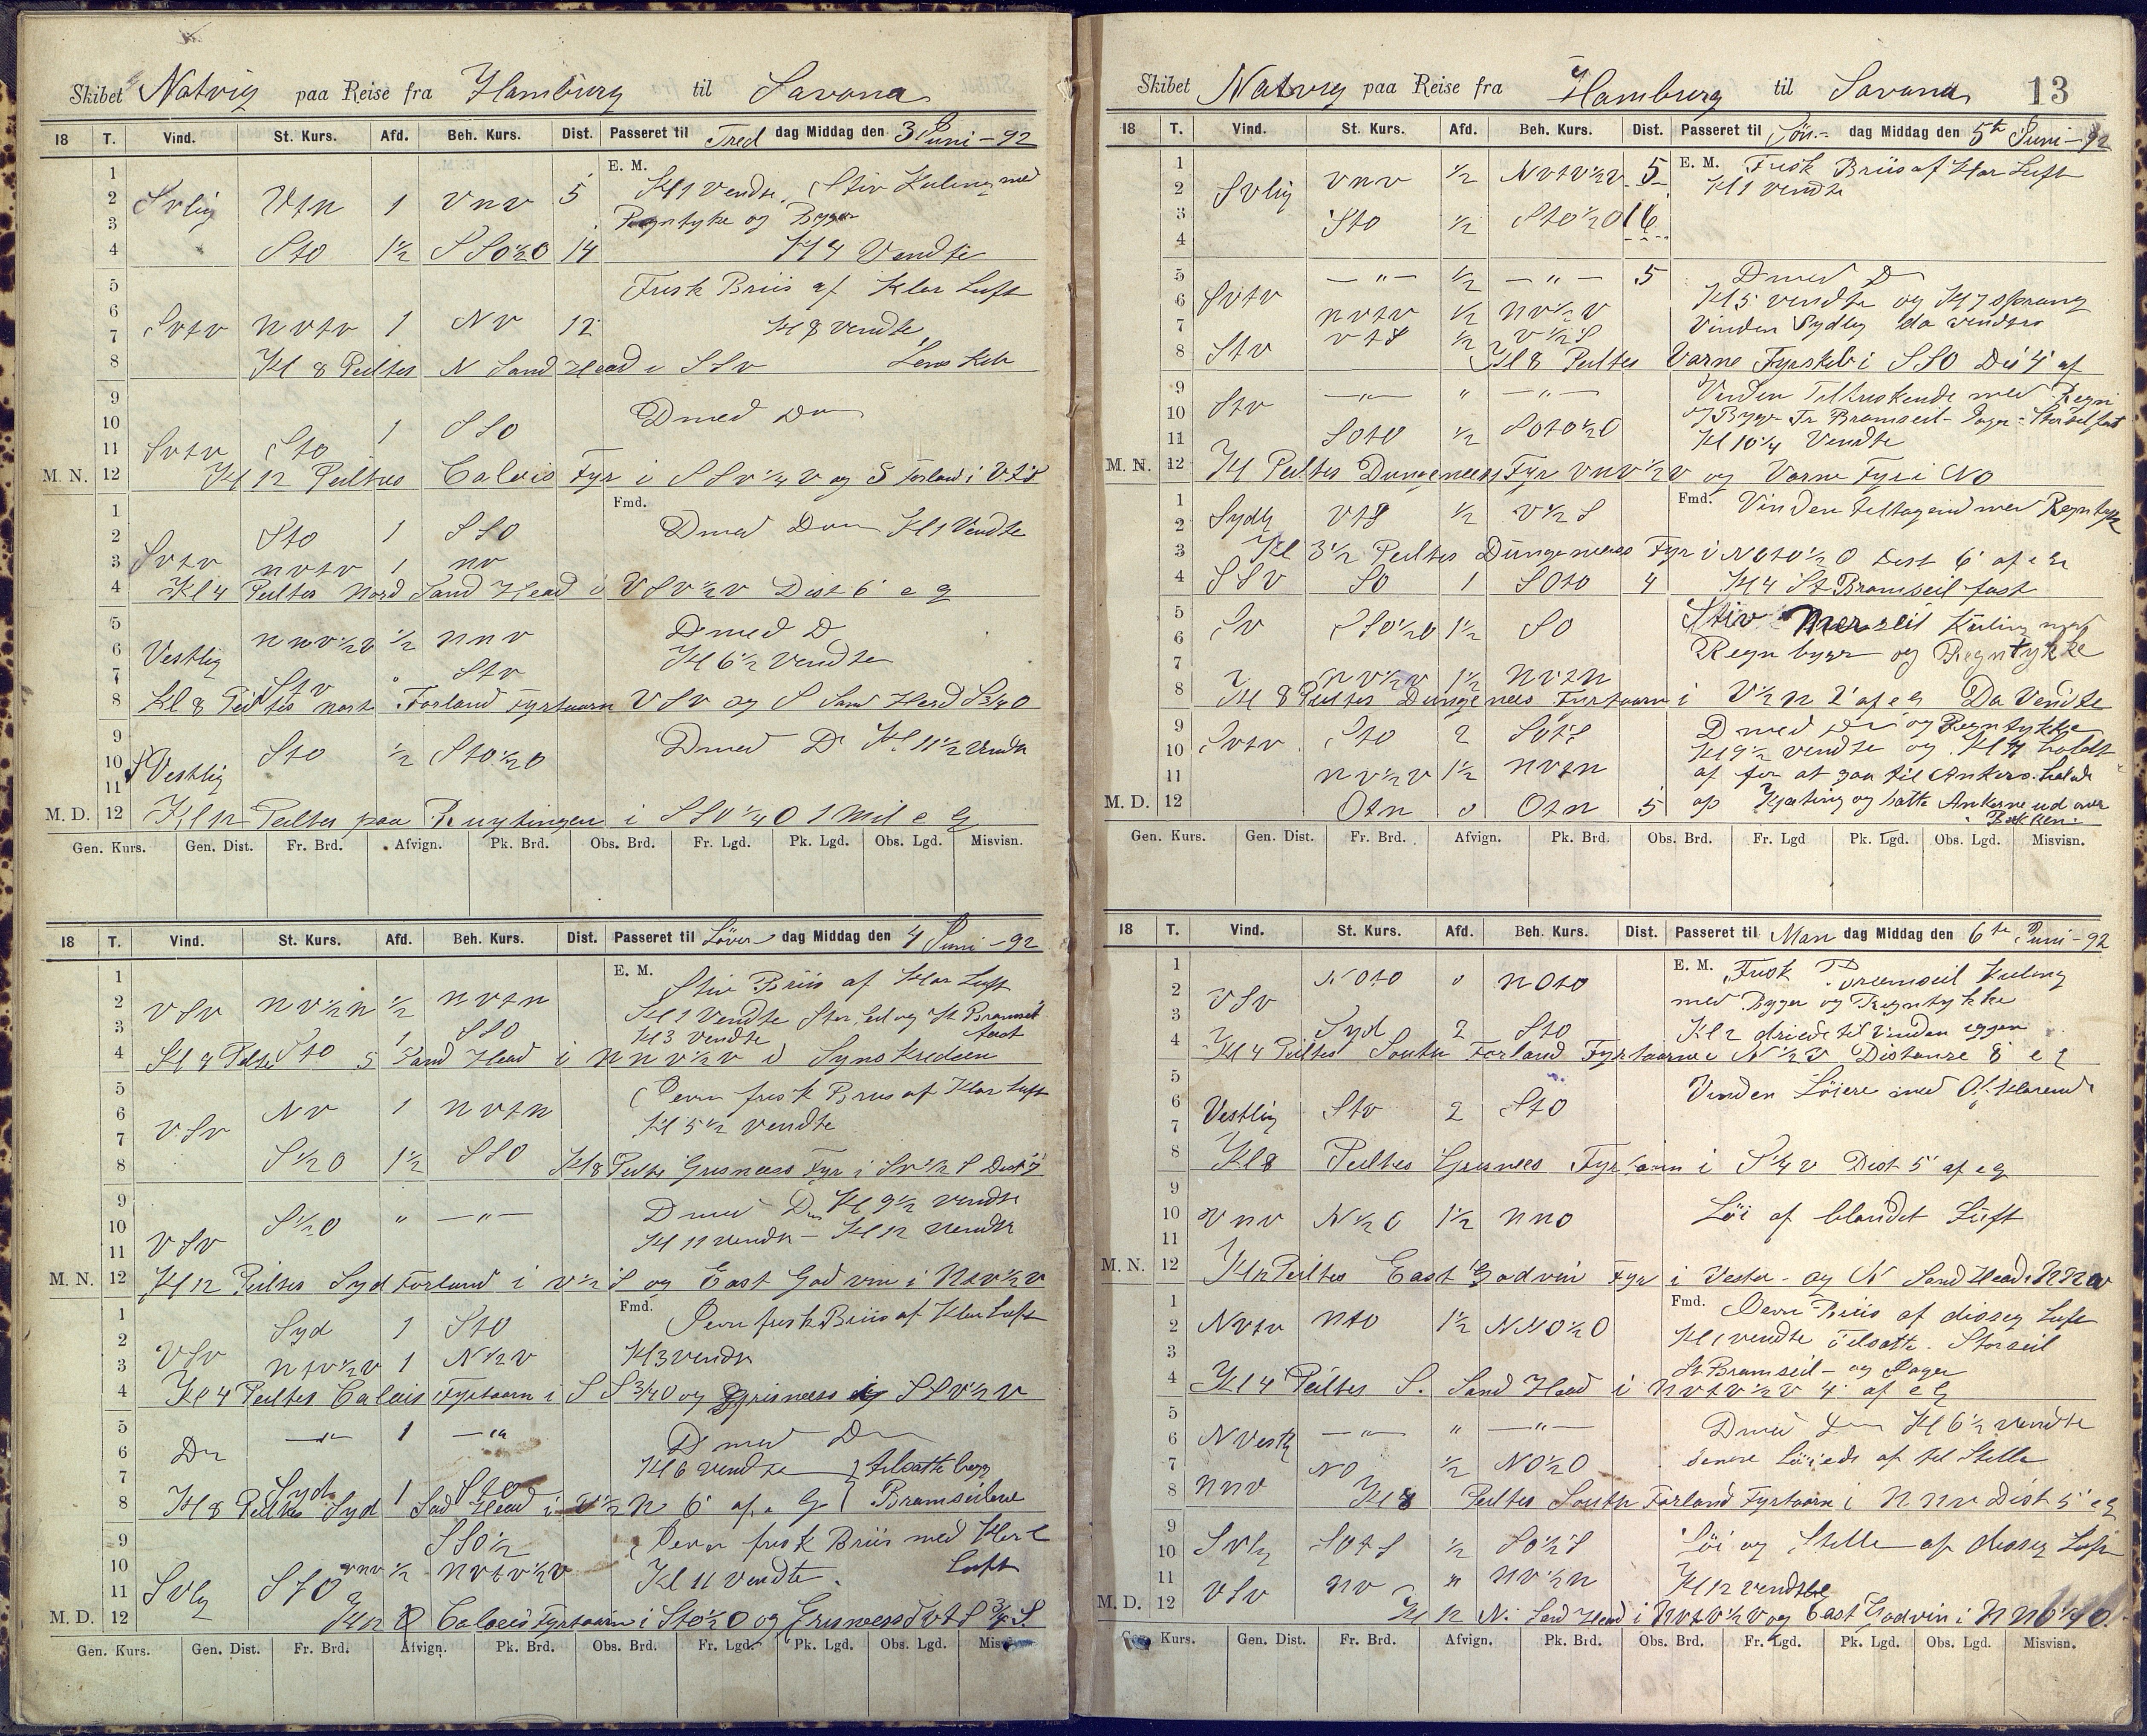 Skibet Natvig paa Reise fra Hamburg til Savana
18 T. Vind. St. Kurs. Afd. Beh. Kurs. Dist. Passeret til Fred dag Middag den 3 Juni - 92
E. M.
1 Kl 1 Vendte, Stiv Kuling med
2 Svlig Vtn 1 VnV 5
3 Regntyke og Byger
4 Sto 1½ SSO½O 14 Kl 4 Vendte
5 Frisk Briis af Klar Luft
6
7 Svtv nvtv 1 NV 12 Kl 8 vendte
8 Kl 8 Peiltes N Sand Head i SSv
9 Dmed Do
10
11 Svtv Sto 1 SSO
M. N. 12 Kl 12 Peiltes Calais Fyr i SSv¼V og S Forland i VtS
Fmd.
1
2 Sto 1 SSO Dmed Do Kl 1 Vendte
3 Svtv nvtv 1 nv
4 Kl 4 Peiltes Nord Sand Head i VSv½v Dist 6' e g
5 nnv½v ½ nnv Dmed D
6 Vestlig Kl 6½ Vendte
7 Stv " Stv
8 Kl 8 Peiltes nort Forland Fyrtaarn VSv og S Sand Head S¾O
9
10 Sto ½ Sto½O Dmed D Kl 11½ Vendte
11 Vestlig
M. D. 12 Kl 12 Peiltes paa Ruytingen i SSV¼O 1 Mil e g
Gen. Kurs. Gen. Dist. Fr. Brd. Afvign. Pk. Brd. Obs. Brd. Fr. Lgd. Pk. Lgd. Obs. Lgd. Misvisn.
18 T. Vind. St. Kurs. Afd. Beh. Kurs. Dist. Passeret til Löver dag Middag den 4 Juni - 92
E. M.
1 Stiv Briis af Klar Luft
2 VSv nv½n ½ nvtn Kl 1 Vendte Stor Seil og St Bramseil
3 1 SSO Kl 3 Vendte fast
4 Kl 4 Peiltes Sto S Sand Head i nnv½v
5 Jevn frisk Briis af Klar Luft
6 Nv 1 nvtn Kl 5½ vendte
7 VSv
8 S½O 1½ SSO Kl 8 Peiltes Grisness Fyr i Sv½S Dist 7
9 Dmed Do Kl 9½ vendte
10 S½O " —"— Kl 11 vendte - Kl 12 vendte
11 VSv
M. N. 12 Kl 12 Peiltes Syd Forland i v½S og East Godvin i Ntv½v
Fmd.
1 Syd 1 Sto Jevn frisk Briis af Klar Luft
2 VSv
3 ntv½v 1 N½v Kl 3 vendte
4 Kl 4 Peiltes Calais Fyrtaarn i S¾O og Grisness SSv½v
5 Do —"— 1 —"— Dmed Do
6 Kl 6 vendte tilsatte begge
7 Syd 1 Sto
8 Kl 8 Peiltes Syd Sad Head i V½N 6' af e G Bramseilene
9 SSO½ Jevn frisk Briis med Klar
10 vnv ½ nvtv½v Kl 11 vendte Luft
11 Svlg Sto
M. D. 12 Kl 12 Calais Fyrtaarn i Sto½O og Grisness SvtS¾S.
Gen. Kurs. Gen. Dist. Fr. Brd. Afvign. Pk. Brd. Obs. Brd. Fr. Lgd. Pk. Lgd. Obs. Lgd. Misvisn.
Skibet Natvig paa Reise fra Hamburg til Savana 13
18 T. Vind. St. Kurs. Afd. Beh. Kurs. Dist. Passeret til Sön. dag Middag den 5te Juni - 92
E. M.
1 vnv ½ Nvtv½v 5 Frisk Briis af Klar Luft
2 Svlig Kl 1 vendte
3 Sto ½ Sto½O 16
4
5 —"— ½ —"— 5 Dmed D
6 Svtv nvtv ½ nv½v Kl 5 vendte og Kl 7 sprang
7 vtS ½ v½S Vinden Sydlig da vendtes
8 Stv Kl 8 Peiltes Varne Fyrskib i SSO Dis 4' af
9 —"— " —"— Vinden Tilfriskende med Regn
10 Stv og Byger Fr Bramseil - Jager - Storseil fast
11 Soto ½ Soto½O Kl 10¼ Vendte
M. N. 12 Kl Peiltes Dungeness Fyr vnv½v og Varne Fyr i NO
Fmd.
1 Vinden tiltagend med Regntyk
2 Sydlg vtS ½ v½S
3 Kl 3½ Peiltes Dungeness Fyr i Noto½O Dist 6' af e g
4 SSv SO 1 SOto 4 Kl 4 St Bramseil fast
5 Stiv Merseil Kuling med
6 Sv SSO½O 1½ SO Regn byger og Regntykke
7 nv½v 1½ nvtn
8 Kl 8 Peiltes Dungeness Fyrtaarn i V½n 2' af e g Da Vendte
9 Dmed Do og Regntykke
10 Svtv Sto 2 SotS Kl 9½ vendte og Kl 11 holdt
11 nv½v 1½ nvtn af for at gaa til Ankers.
M. D. 12 Otn 0 Otn 5 op Kjæting og satte Ankerne ud over
Bakken.
Gen. Kurs. Gen. Dist. Fr. Brd. Afvign. Pk. Brd. Obs. Brd. Fr. Lgd Pk. Lgd. Obs. Lgd. Misvisn.
18 T. Vind. St. Kurs. Afd. Beh. Kurs. Dist. Passeret til Man dag Middag den 6te Juni - 92
E. M.
1 NOto 0 nOto Frisk Bramseil Kuling
2 VSv med Byger og Regntykke
3 Syd 2 Sto Kl 2 dreiede til Vinden eggen
4 Kl 4 Peiltes South Forland Fyrtaarn i N½V Distanse 8' e g
5 Vinden Löiere med Opklarende
6 Vestlig Stv 2 Sto
7
8 Kl 8 Peiltes Grisnees Fyrtaarn i S¼v Dist 5' af e g
9
10 vnv N½O 1½ nno Löi af blandet Luft
11
M. N. 12 Kl 12 Peiltes East Godvin Fyr i Vester - og N Sand Head i NNv
Fmd.
1 Jevn Briis af diseg Luft
2 Nvtv nto 1½ NNO½O Kl 1 vendte tilsatte Storseil
3 St Bramseil - og Jager
4 Kl 4 Peiltes S. Sand Head i nvtv½v 4' af e G
5 Dmed Do Kl 6½ vendte
6 NVestlg —"— " —"— senere Löiede af til Stille
7 NO ½ NO½O
8 nnv Kl 8 Peiltes South Forland Fyrtaarn i NNv Dist 5' e g
9 Svlg SotS ½ SO½S Löi og Stille af diseg Luft
10
11 nv " nv½n Kl 12 vendte
M. D. 12 VSv Kl 12 N. Sand Head i Nvtv½v og East Godvin i NNO¼O.
Kurs. Gen. Dist. Fr. Brd. Afvign. Pk. Brd. Obs. Brd. Fr. Lgd. Pk. Lgd. Obs. Lgd. Misvisn.